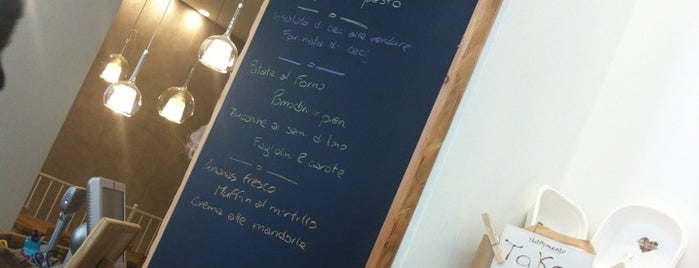 pesto
Insalata di ceci alle verdure
Farinata di ceci
Patate al Forno
Pomodori ripieni
Zucchine ai semi di lino
Fagiolini e carote
Ananas fresco
Muffin al mirtillo
Crema alle mandorle
TaKe